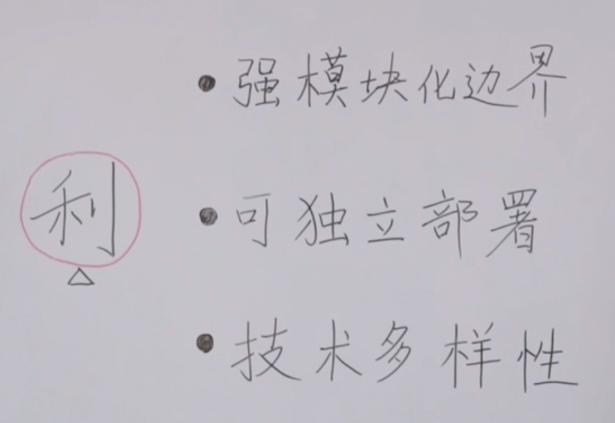 利
• 强模块化边界
• 可独立部署
• 技术多样性